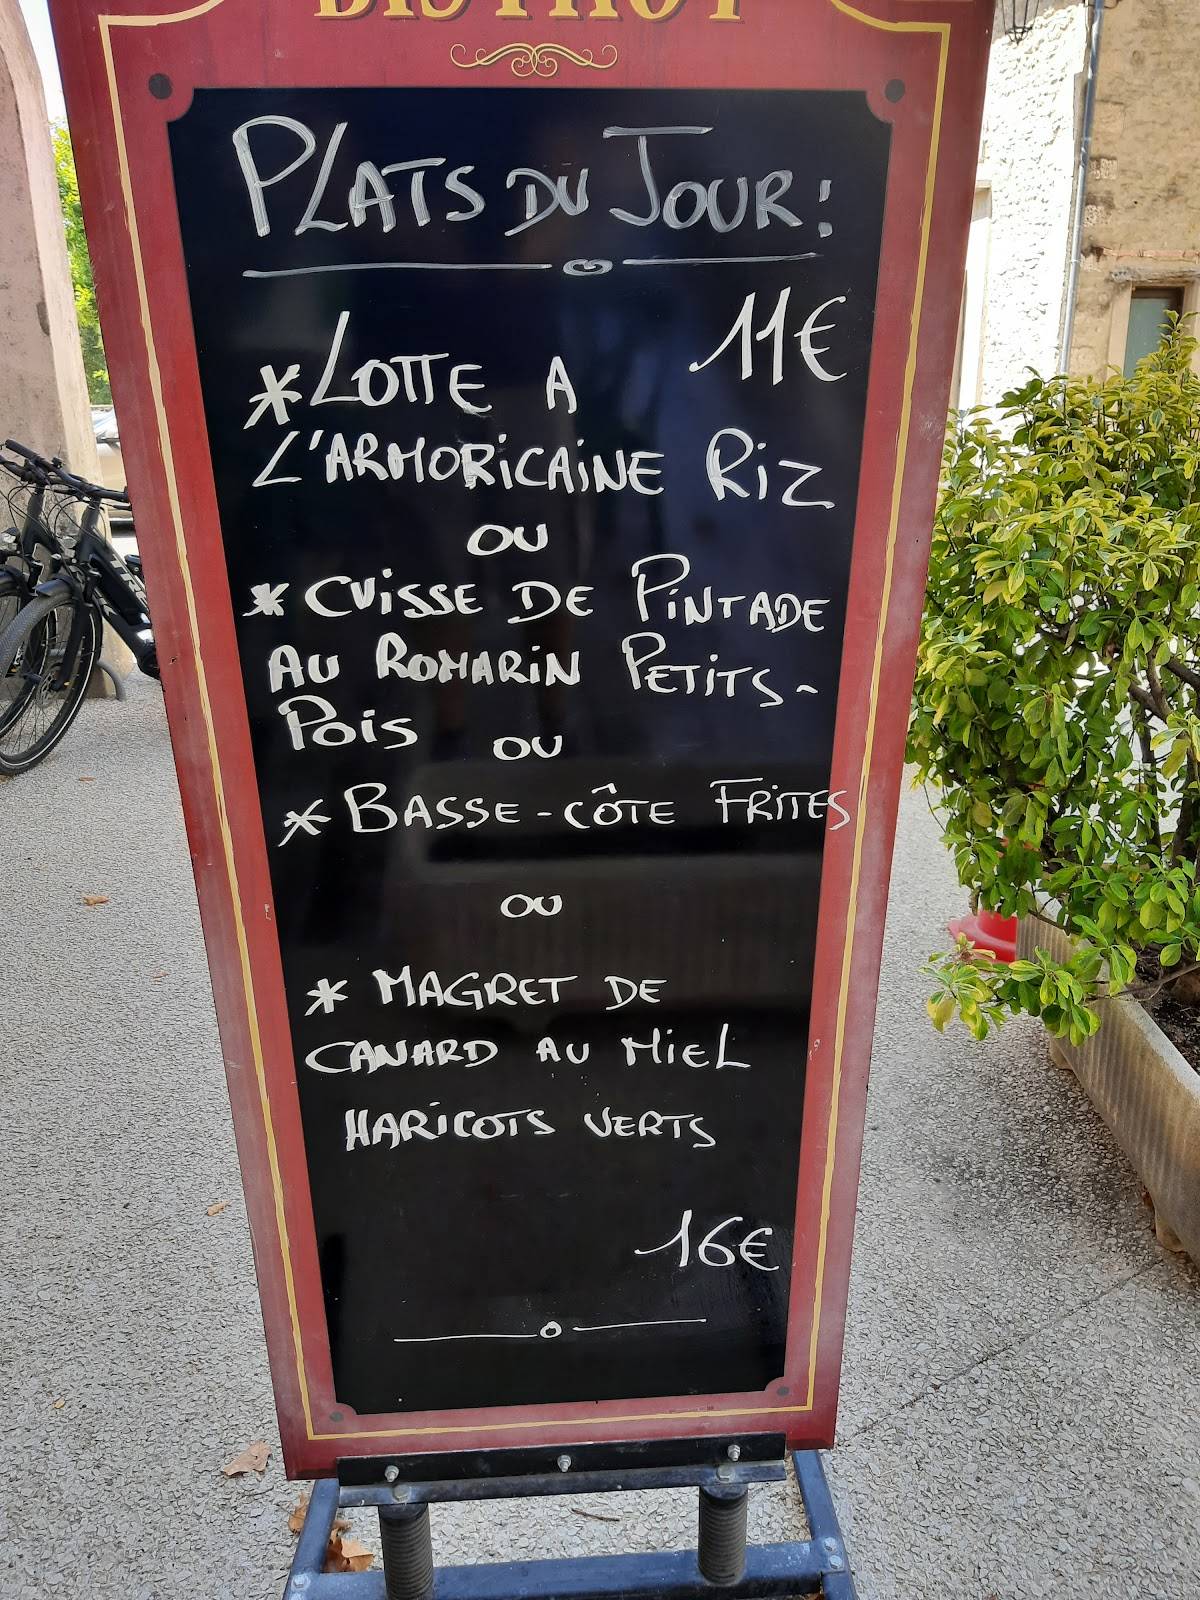 BISTROT
PLATS DU JOUR :
11€
*LOTTE A
L'ARMORICAINE RIZ
OU
*CUISSE DE PINTADE
AU ROMARIN PETITS-
POIS OU
*BASSE-CÔTE FRITES
OU
* MAGRET DE
CANARD AU MIEL
HARICOTS VERTS
16€